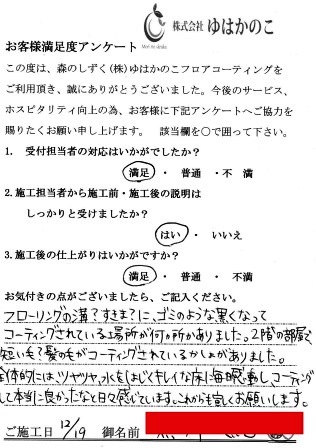 株式会社 ゆはかのこ
お客様満足度アンケート
この度は、森のしずく(株)ゆはかのこフロアコーティングを
ご利用頂き、誠にありがとうございました。今後のサービス、
ホスピタリティ向上の為、お客様に下記アンケートへご協力を
賜りたくお願い申し上げます。 該当欄を○で囲って下さい。
1. 受付担当者の対応はいかがでしたか?
満足 ・ 普通 ・不 満
2.施工担当者から施工前・施工後の説明は
しっかりと受けましたか?
はい ・ いいえ
3.施工後の仕上がりはいかがですか?
満足 ・ 普通 ・ 不満
お気付きの点がございましたら、ご記入ください。
フローリングの溝?すきま?に、ゴミのような黒くなって
コーティングされている場所が何か所かありました。2階の部屋で
短い毛?髪の毛がコーティングされているかしょがありました。
全体的にはツヤツヤ、水をはじくキレイな床に毎日感動し、コーティング
して本当に良かったなと日々感じています。これからも宜しくお願いします。
ご施工日 12/19 御名前